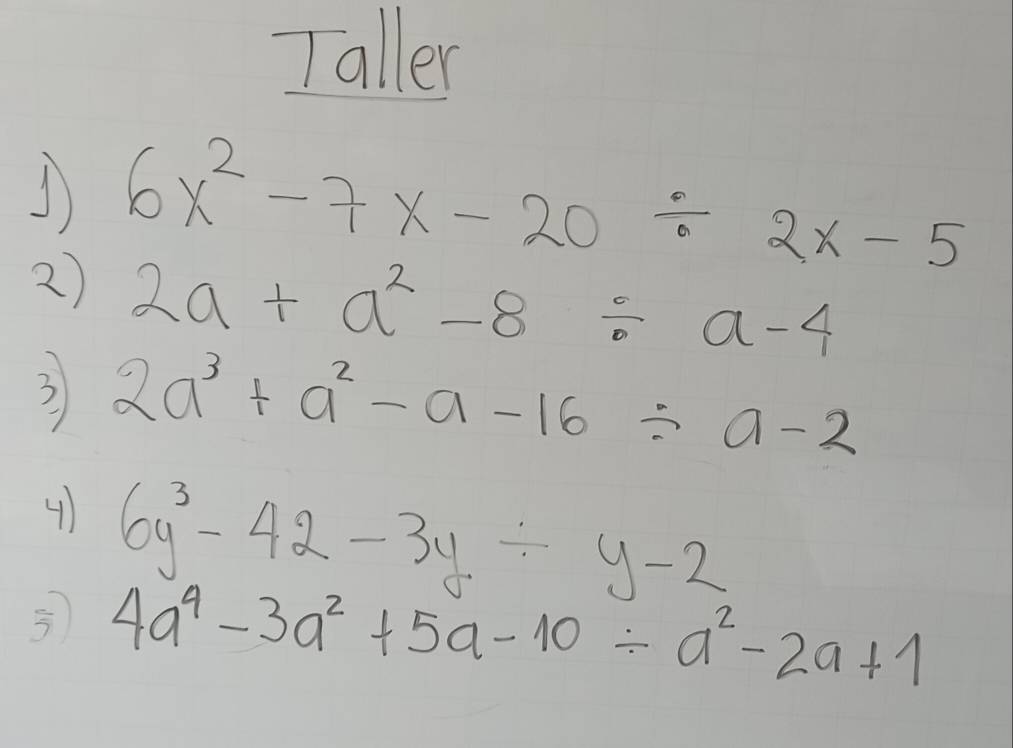 Taller
1) 6x² - 7x - 20 ÷ 2x - 5
2) 2a + a² - 8 ÷ a - 4
3) 2a³ + a² - a - 16 ÷ a - 2
4) 6y³ - 42 - 3y ÷ y - 2
5) 4a⁴ - 3a² + 5a - 10 ÷ a² - 2a + 1